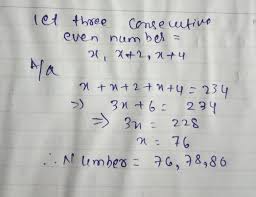 let three consecutive
even number =
x, x+2, x+4
A/q
x + x + 2 + x + 4 = 234
⇒ 3x + 6 = 234
⇒ 3x = 228
x = 76
∴ Number = 76, 78, 80